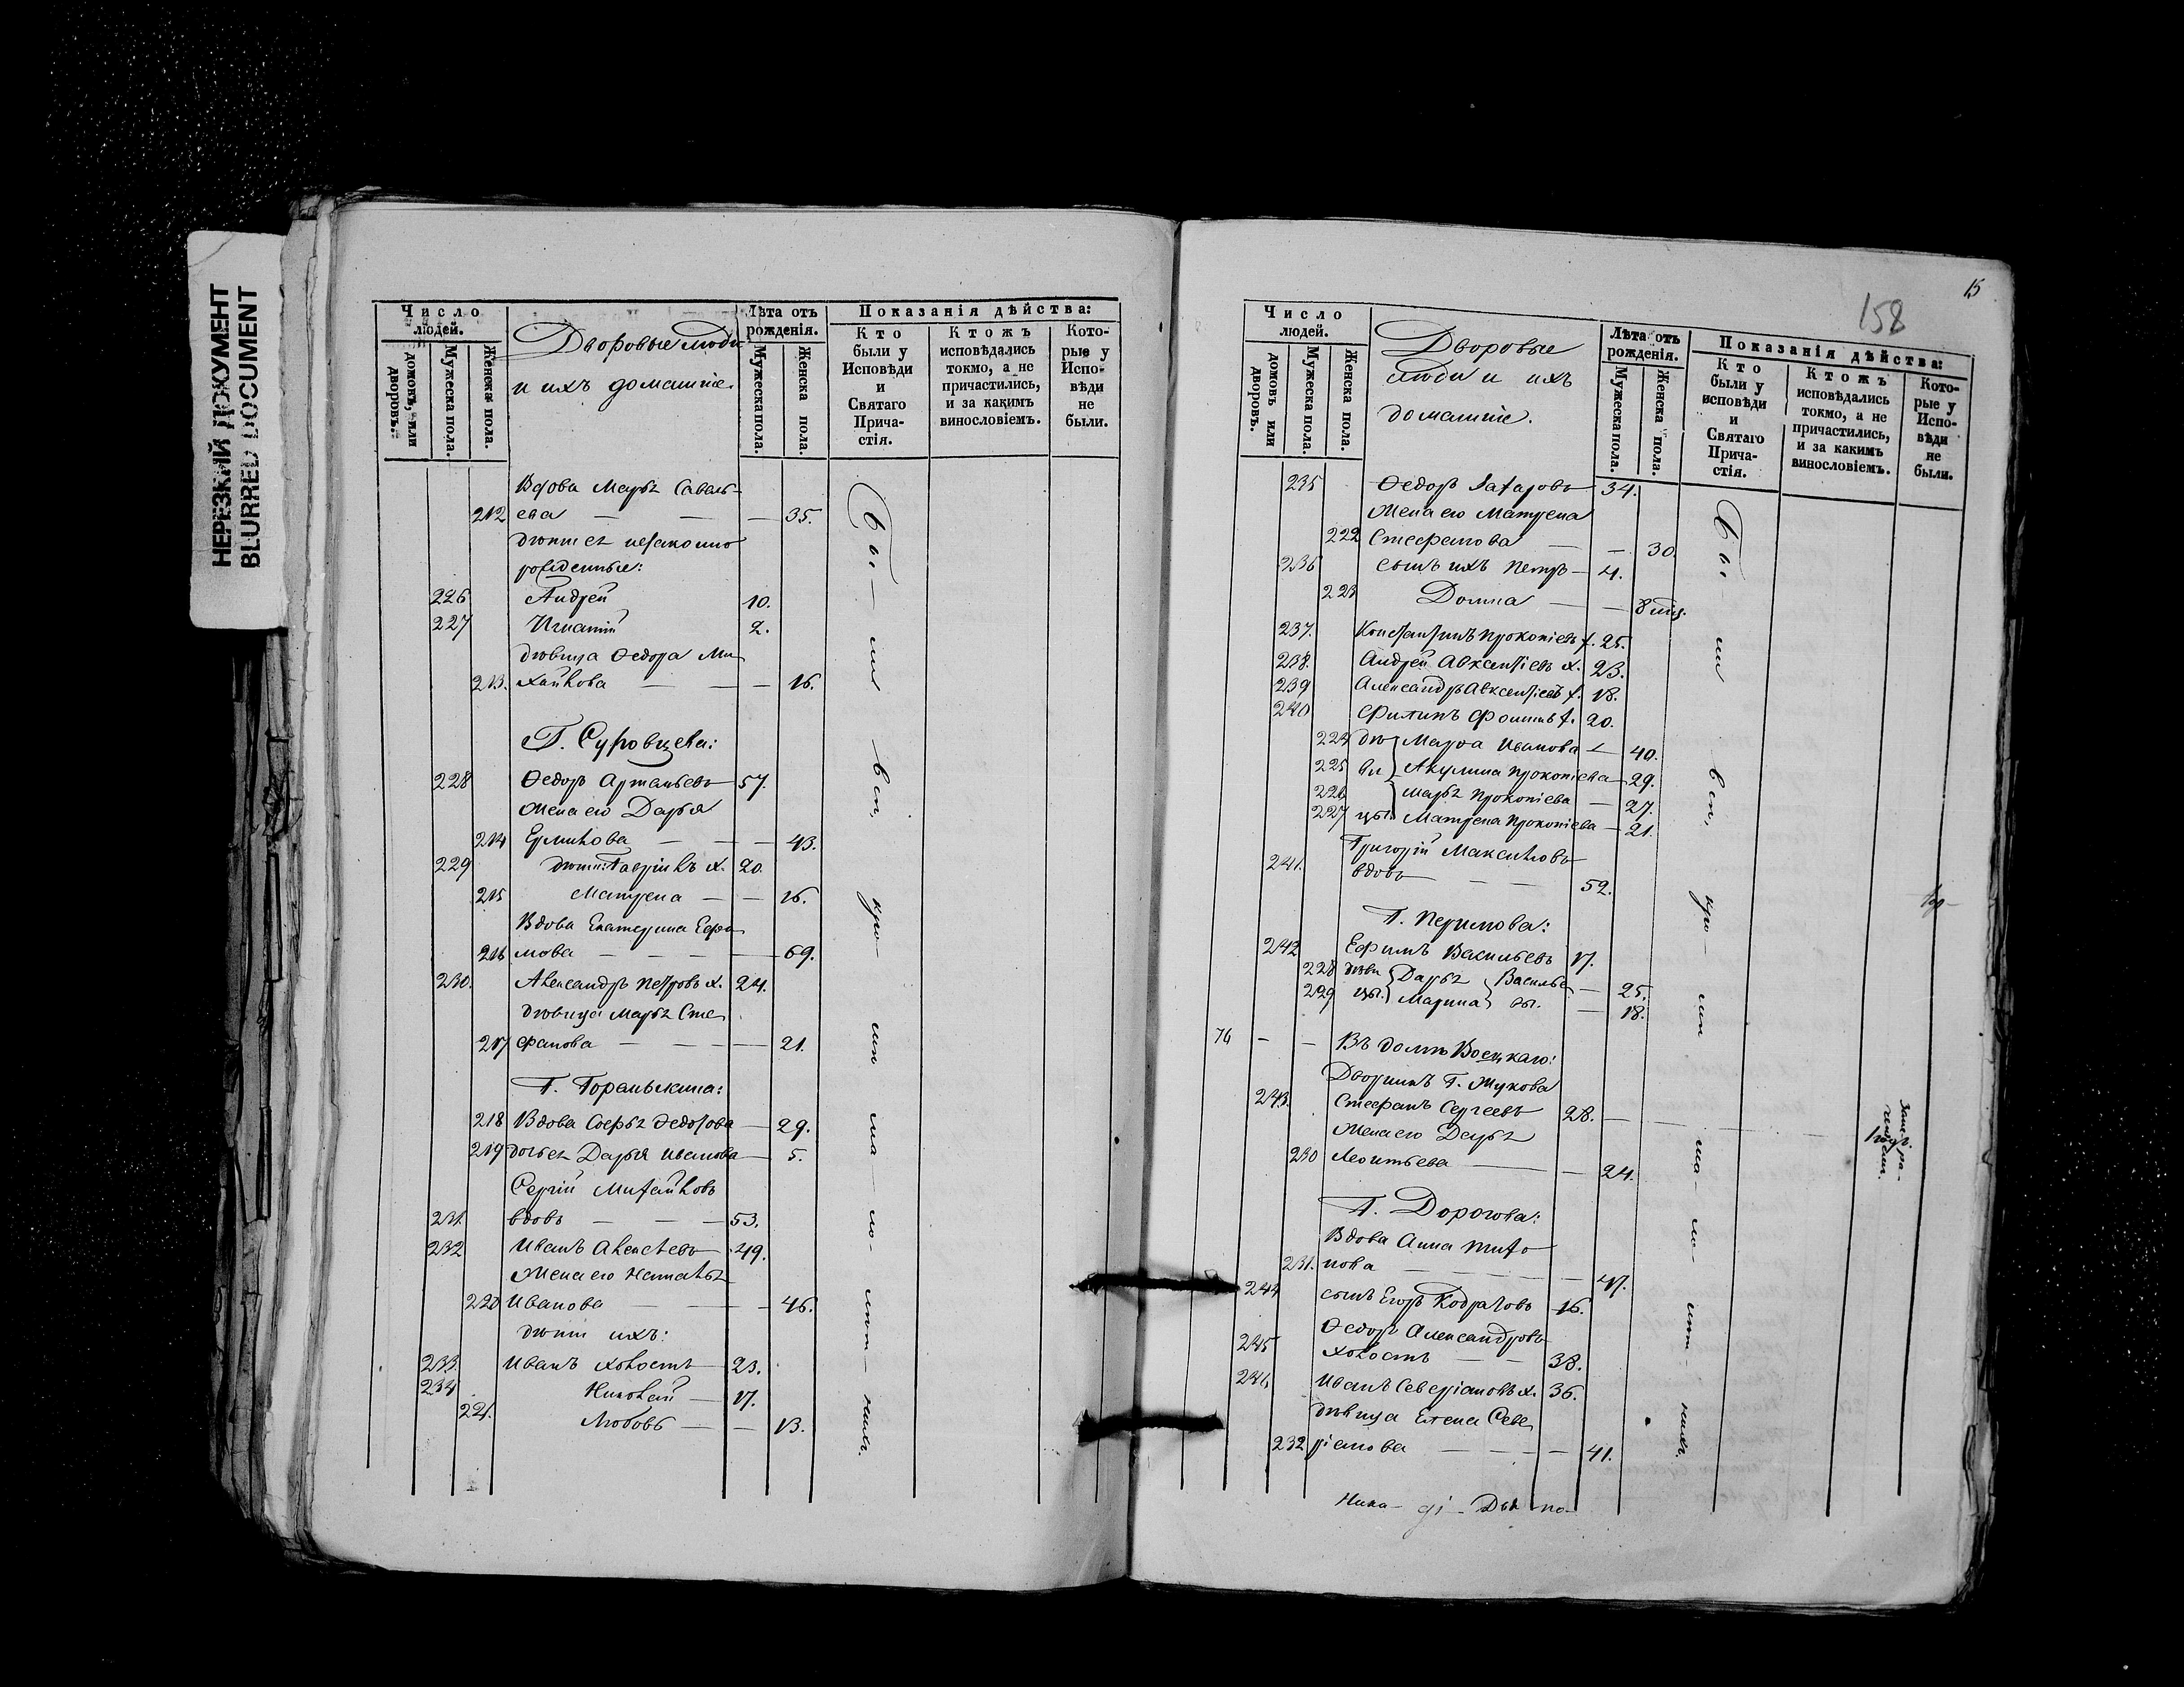 НЕРЕЗКИЙ ДОКУМЕНТ
BLURRED DOCUMENT
Число людей.
домовъ, или дворовъ.
Мужеска пола.
Женска пола.
Дворовые люди
и ихъ домашніе.
Лѣта отъ рожденія.
Мужеска пола.
Женска пола.
Показанія дѣйства:
Кто были у Исповѣди и Святаго Причастія.
Ктожъ исповѣдались токмо, а не причастились, и за какимъ винословіемъ.
Которые у Исповѣди не были.
Вдова Марья Савель-
212 ева — — — 35.
дѣти ея незаконно
рожденные:
226 Андрей 10.
227 Игнатій 2.
дѣвица Ѳедора Ми
213. хайлова — — — 16.
Г. Суровцева:
228 Ѳедоръ Артамьевъ 57.
Жена его Дарья
214 Ермилова — — — 43.
229 дѣти: Гавріилъ х. 20.
215 Матрена — — 16.
Вдова Екатерина Ефра
216 мова — — — — 69.
230. Александръ Петровъ х. 24.
дѣвица Марья Сте
217 фанова — — — 21.
Г. Горемыкина:
218 Вдова Софья Ѳедорова — 29.
219 дочь ея Дарья Иванова — 5.
Сергій Михайловъ
231. вдовъ — — — 53.
232 Иванъ Алексѣевъ 49.
Жена его Наталья
220 Иванова — — — 46.
дѣти ихъ:
233. Иванъ холостъ — 23.
234 Николай — 17.
221. Любовь — — 13.
бы — ли вси, кро — ми ма — ло — лѣт — нихъ.
158
15
Число людей.
домовъ или дворовъ.
Мужеска пола.
Женска пола.
Дворовые
люди и ихъ
домашніе.
Лѣта отъ рожденія.
Мужеска пола.
Женска пола.
Показанія дѣйства:
Кто были у исповѣди и Святаго Причастія.
Ктожъ исповѣдались токмо, а не причастились, и за какимъ винословіемъ.
Которые у Исповѣди не были.
235 Ѳедоръ Захаровъ 34.
Жена его Матрена
222 Стефанова — — 30
236 сынъ ихъ Петръ — 4.
223 Домна — — 8 мѣс.
237. Константинъ Прокопіевъ х. 25.
238. Андрей Авксентіевъ х. 23.
239 Александръ Авксентіевъ х. 18.
240 Филипъ Фоминъ х. 20.
224 дѣ Марѳа Иванова — 40.
225 ви Акулина Прокопіева — 29.
226 Марья Прокопіева — 27.
227 цы: Матрена Прокопіева — 21.
Григорій Максимовъ
241. вдовъ — — 52.
Г. Перимова:
242 Ефимъ Васильевъ 17.
228 дѣви Дарья Василье — 25.
229 цы: Марина вы. — 18.
76 — — Въ домѣ Воецкаго:
Дворникъ Г. Жукова
243. Стефанъ Сергеевъ 28. —
Жена его Дарья
230 Леонтьева — — 24.
Г. Дорогова:
Вдова Анна Тихо
231. нова — — — — 47.
244 сынъ Егоръ Кодратовъ 16.
Ѳедоръ Александровъ
245 холостъ — — 38.
246 Иванъ Северіановъ х. 36.
дѣвица Елена Севе
232 ріанова — — — — 41.
бы — ли вси, кро — ми ма — ло — лѣт — нихъ.